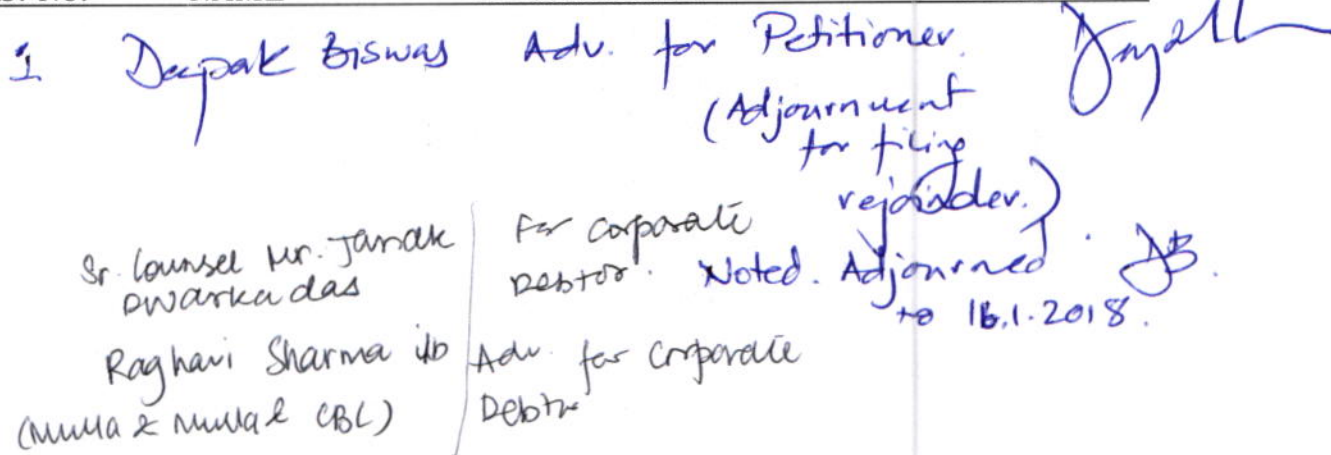 1 Deepak Biswas Adv. for Petitioner.
(Adjournment
for filing
rejoinder.)
Sr. Counsel Mr. Janak
Dwarkadas
For Corporate
Debtor.
Noted. Adjourned
to 16.1.2018.
Raghavi Sharma i/b
(Mulla & Mulla & CBC)
Adv. for Corporate
Debtor